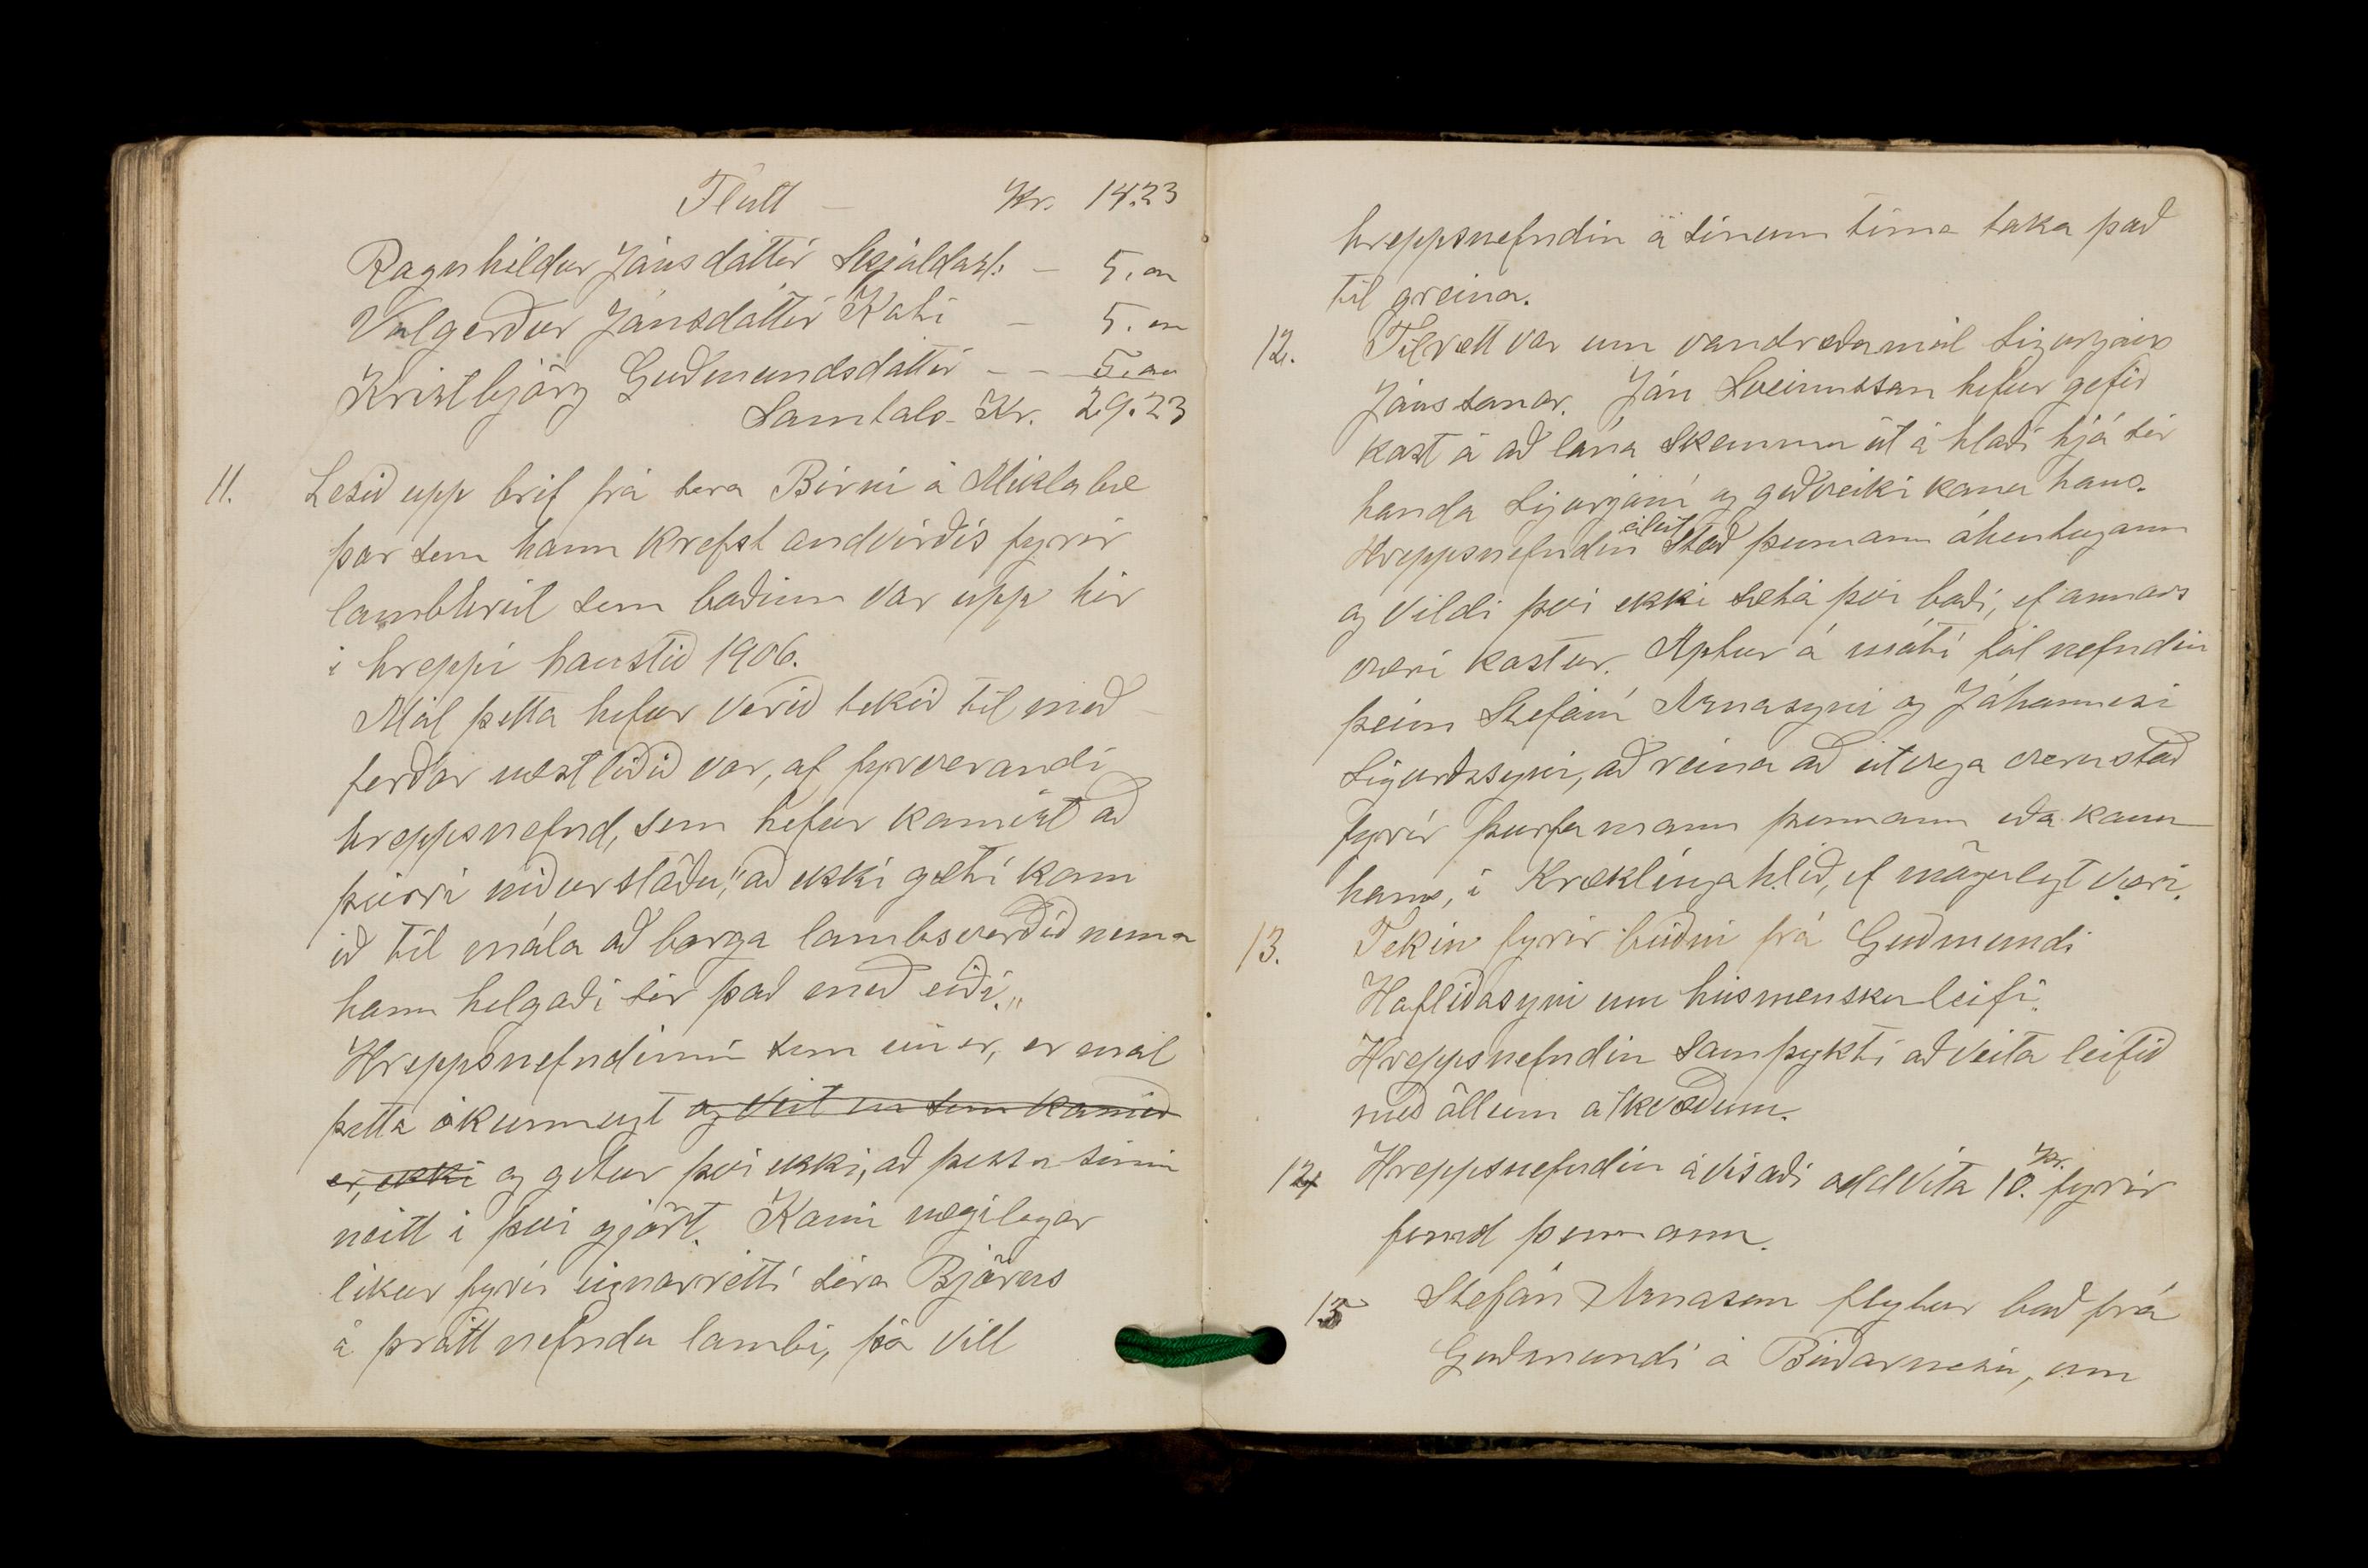 Flutt — Kr. 14.23
Ragnhildur Jónsdóttir Skjaldarst. — 5.00
Valgerður Jónsdóttir Koti — 5.00
Kristbjörg Guðmundsdóttir - - 5.00
Samtals - Kr. 29.23
11. Lesið upp bréf frá séra Birni á Miklabæ
þar sem hann krefst andvirðis fyrir
lambhrút sem boðinn var upp hér
í hreppi haustið 1906.
Mál þetta hefur verið tekið til með-
ferðar næstliðið vor, af fyrverandi
hreppsnefnd, sem hefur komist að
þeirri niðurstöðu, "að ekki gæti kom
ið til mála að borga lambsverðið nema
hann helgaði sér það með eiði."
Hreppsnefndinni sem nú er, er mál
þetta ókunnugt og veit en sem komið
er, ekki og getur því ekki, að þessu sinni
neitt í því gjört. Komi nægilegar
líkur fyrir eignarrétti séra Björns
á þrátt nefndu lambi, þá vill
hreppsnefndin á sínum tíma taka það
til greina.
12. Tilrætt var um vandræðamál Sigurjóns
Jónssonar. Jón Sveinsson hefur gefið
kost á að lána skemmu út á hlaði hjá sér
handa Sigurjóni og geðveiki konu hans.
Hreppsnefndin áleit stað þennann óhentugann
og vildi því ekki sæta því boði, ef annars
væri kostur. Aptur á móti fól nefndin
þeim Stefáni Árnasyni og Jóhannesi
Sigurðssyni, að reina að útvega verustað
fyrir þurfamann þennann eða konu
hans, í Kræklingahlíð, ef mögulegt væri.
13. Tekin fyrir beiðni frá Guðmundi
Hafliðasyni um húsmenskuleifi.
Hreppsnefndin samþykti að veita leifið
með öllum atkvæðum.
14 Hreppsnefndin ávísaði oddvita 10. Kr. fyrir
fund þennann.
15 Stefán Árnason flytur boð frá
Guðmundi á Búðarnesi, um